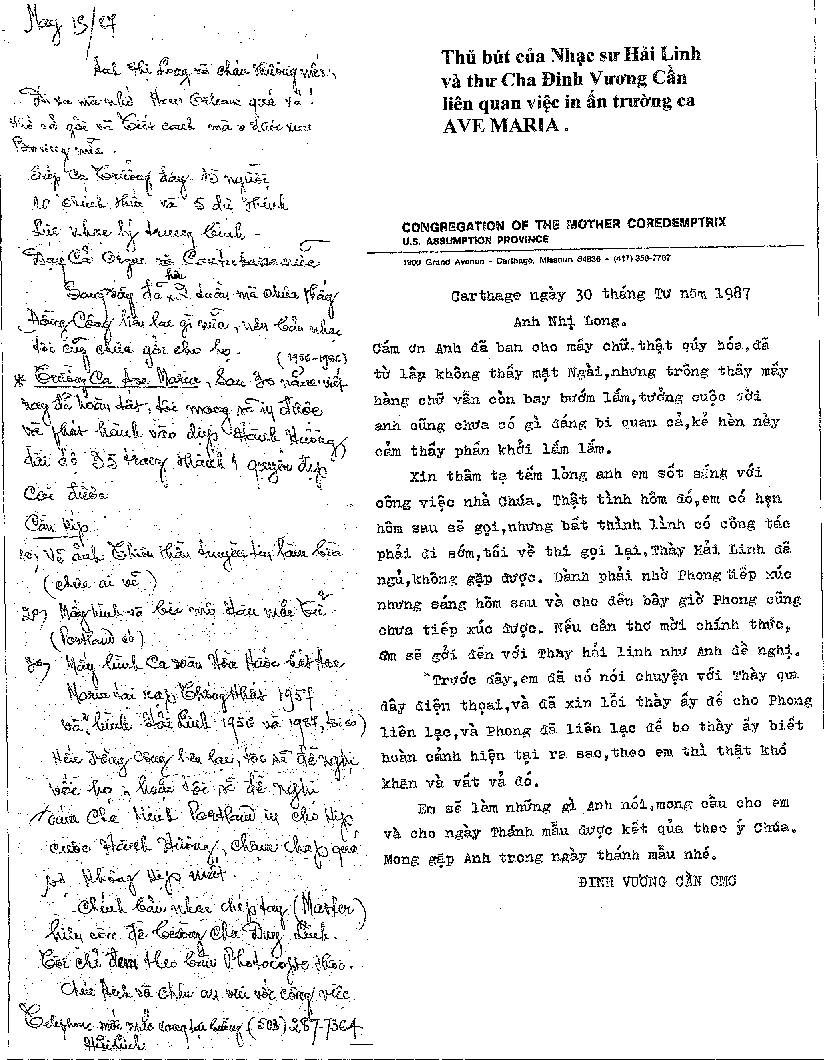 May 13/87
Anh Nhị Long và cháu Hương mến,
Đi xa mà nhớ New Orlean quá và!
Giúp Ca Trưởng đây 15 người
10 chính thức và 5 dự thính
Dạy Cả Organ và Contrebasse nữa
hè
Đồng Công liên lạc gì nữa, nên bản nhạc
tôi cũng chưa gởi cho họ.
(1956-1986)
* Trường Ca Ave Maria, Sau 30 năm viết
nay đã hoàn tất, tôi mong sẽ in được
và phát hành vào dịp Hành Hương
dài độ 35 trang thành 1 quyển đẹp
Coi được
Cần kíp
10, Vẽ ảnh Thiên thần truyền tin làm bìa
(chưa ai vẽ)
20,
(Portland có)
30, Mấy hình Ca đoàn Hồn Nước hát Ave
Maria tại rạp Thống Nhất 1957
và hình Hải Linh 1956 và 1987, tôi có)
Nếu Đồng Công liên lạc, tôi sẽ đề nghị
với họ, hoặc tôi sẽ đề nghị
của Cha Minh Portland in cho kịp
cuộc Hành Hương, chậm chạp quá
sợ không kịp mất.
Chính bản nhạc chép tay (Master)
hiện còn để
Tôi chỉ đem theo bản Photocopie thôi.
Chúc Anh và Cháu an vui với công việc
Telephone (503) 287-7364
Hải Linh
Thủ bút của Nhạc sư Hải Linh
và thư Cha Đinh Vương Cần
liên quan việc in ấn trường ca
AVE MARIA .
CONGREGATION OF THE MOTHER COREDEMPTRIX
U.S. ASSUMPTION PROVINCE
1900 Grand Avenue - Carthage, Missouri 64836 - (417) 358-7787
Carthage ngày 30 tháng Tư năm 1987
Anh Nhị Long.
Cám ơn Anh đã ban cho mấy chữ,thật qúy hóa,đã
từ lâp không thấy mặt Ngài,nhưng trông thấy mấy
hàng chữ vẫn còn bay bướm lắm,tưởng cuộc đời
anh cũng chưa có gì đáng bi quan cả,kẻ hèn này
cảm thấy phấn khởi lắm lắm.
Xin thâm tạ tấm lòng anh em sốt sáng với
công việc nhà Chúa. Thật tình hôm đó,em có hẹn
hôm sau sẽ gọi,nhưng bất thình lình có công tác
phải đi sớm,tối về thì gọi lại,Thầy Hải Linh đã
ngủ,không gặp được. Đành phải nhờ Phong tiếp xúc
nhưng sáng hôm sau và cho đến bây giờ Phong cũng
chưa tiếp xúc được. Nếu cần thơ mời chính thức,
ẽm sẽ gởi đến với Thầy hải linh như Anh đề nghị.
Trước đây,em đã có nói chuyện với Thầy qua
dây điện thọai,và đã xin lỗi thầy ấy để cho Phong
liên lạc,và Phong đã liên lạc để bo thầy ấy biết
huàn cảnh hiện tại ra sao,theo em thì thật khó
khăn và vất vả đó.
Em sẽ làm những gì Anh nói,mong cầu cho em
và cho ngày Thánh mẫu được kết qủa theo ý Chúa.
Mong gặp Anh trong ngày thánh mẫu nhé.
ĐINH VƯƠNG CẦN CMC